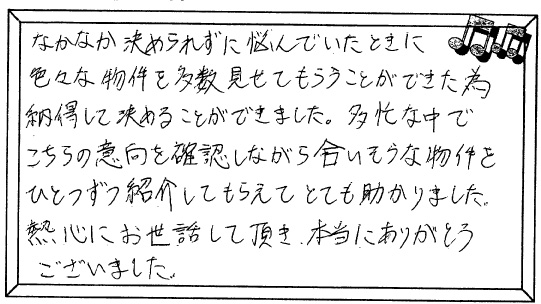 なかなか決められずに悩んでいたときに
色々な物件を多数見せてもらうことができた為
納得して決めることができました。多忙な中で
こちらの意向を確認しながら合いそうな物件を
ひとつずつ紹介してもらえてとても助かりました。
熱心にお世話して頂き、本当にありがとう
ございました。